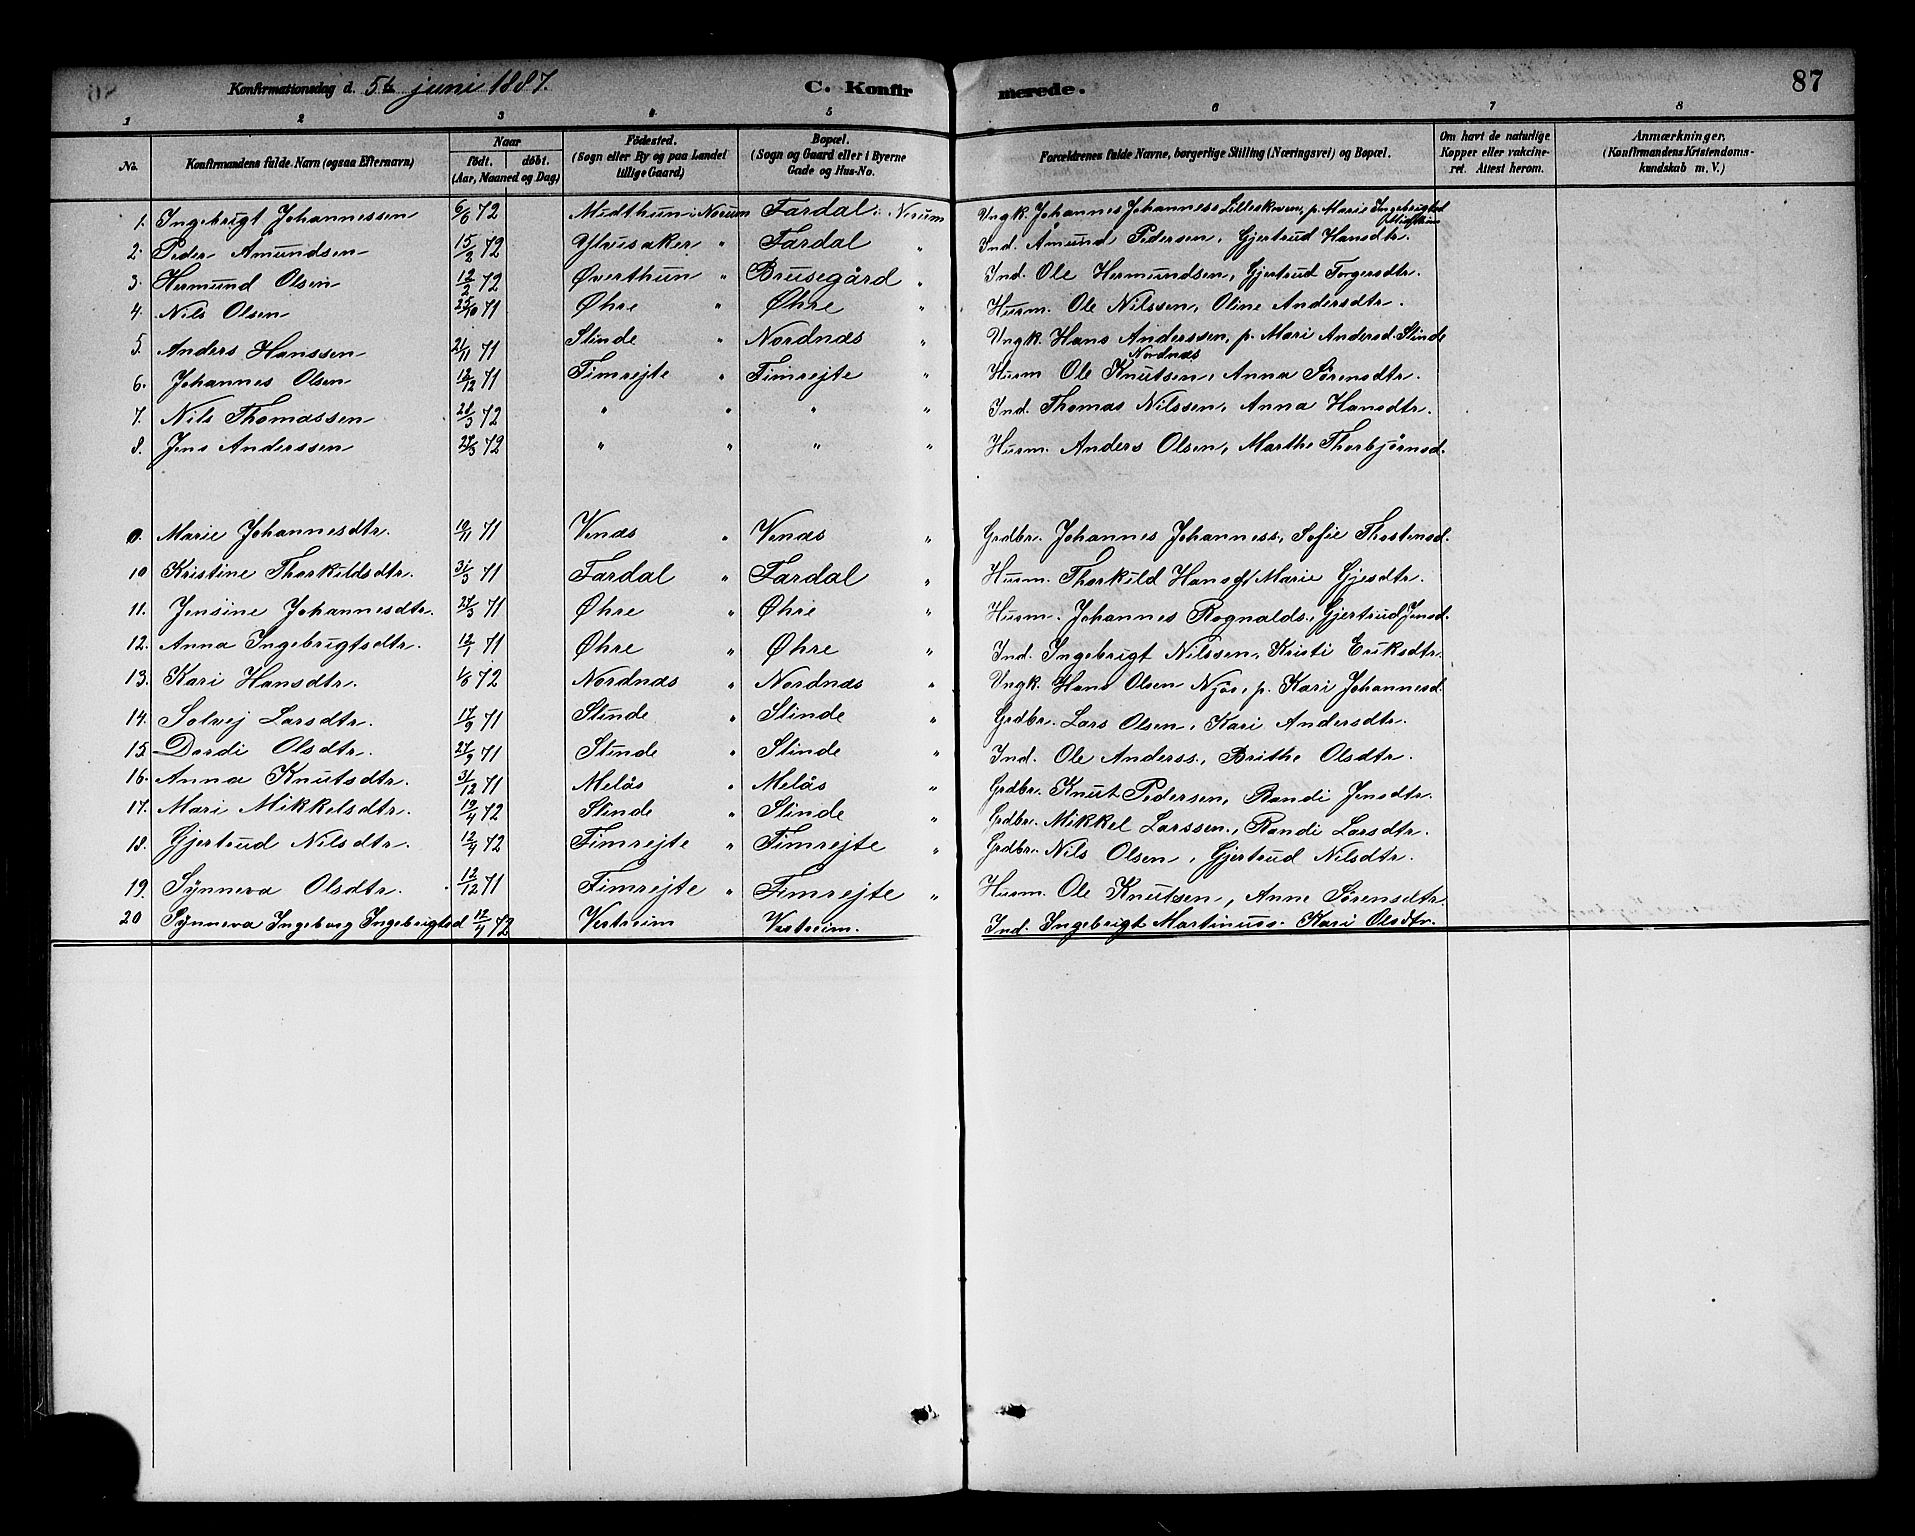 Konfirmationsdag d. 5te juni 1887. C. Konfirmerede. 87
1 2 3 4 5 6 7 8
No. Konfirmandens fulde Navn (ogsaa Efternavn) Naar født. døbt. (Aar, Maaned og Dag) Fødested. (Sogn eller By og paa Landet tillige Gaard) Bopæl. (Sogn og Gaard eller i Byerne Gade og Hus-No. Forældrenes fulde Navne, borgerlige Stilling (Næringsvei) og Bopæl. Om havt de naturlige Kopper eller vakcineret. Attest herom. Anmærkninger. (Konfirmandens Kristendomskundskab m. V.)
1. Ingebrigt Johannessen 6/6 72 Midthun i Norum Fardal i Norum Ungk. Johannes Johanness Lilleskoven, p. Marie Ingebrigtsd Midthun
2. Peder Amundsen 15/2 72 Ylvisaker " Fardal " Ind. Åmund Pedersen, Gjertrud Hansdtr.
3. Hermund Olsen 12/2 72 Øverthun " Brusegård " Ind. Ole Hermundsen, Gjertrud Torgersdtr.
4. Nils Olsen 25/10 71 Øhre " Øhre " Husm. Ole Nilssen, Oline Andersdtr.
5. Anders Hanssen 21/11 71 Slinde " Nordnæs " Ungk. Hans Anderssen, p. Mari Andersd. Slinde
Nordnæs
6. Johannes Olsen 12/12 71 Fimrejte " Fimrejte " Husm Ole Knutsen, Anna Sørensdtr.
7. Nils Thomassen 28/3 72 " " " " Ind. Thomas Nilssen, Anna Hansdtr.
8. Jens Anderssen 27/3 72 " " " " Husm. Anders Olsen, Marthe Thorbjørnsd.
9. Marie Johannesdtr. 10/11 71 Venæs " Venæs " Grdbr. Johannes Johanness, Sofie Thostensd.
10 Kristine Thorkildsdtr. 31/3 71 Fardal " Fardal " Husm. Thorkild Hans Marie Gjesdtr.
11. Jensine Johannesdtr. 27/3 71 Øhre " Øhre " Husm. Johannes Rognalds., Gjertrud Jensd.
12. Anna Ingebrigtsdtr. 12/7 71 Øhre " Øhre " Ind. Ingebrigt Nilssen, Kristi Eriksdtr.
13. Kari Hansdtr. 1/6 72 Nordnæs " Nordnæs " Ungk. Hans Olsen Njøs, p. Kari Johannesd.
14. Solvej Larsdtr. 17/9 71 Slinde " Slinde " Grdbr. Lars Olsen, Kari Andersdtr.
15. Dordi Olsdtr. 27/9 71 Slinde " Slinde " Ind. Ole Anderss, Brithe Olsdtr.
16. Anna Knutsdtr. 31/12 71 Melås " Melås " Grdbr. Knut Pedersen, Randi Jensdtr.
17. Mari Mikkelsdtr. 19/4 72 Slinde " Slinde " Grdbr. Mikkel Larssen., Randi Larsdtr.
18. Gjertrud Nilsdtr. 12/4 72 Fimrejte " Fimrejte " Grdbr. Nils Olsen, Gjertrud Nilsdtr.
19. Synneva Olsdtr. 12/12 71 Fimrejte " Fimrejte " Husm. Ole Knutsen, Anne Sørensdtr
20 Synneva Ingeborg Ingebrigtsd 12/4 72 Vestreim Vestreim. Ind. Ingebrigt Martinuss. Kari Olsdtr.